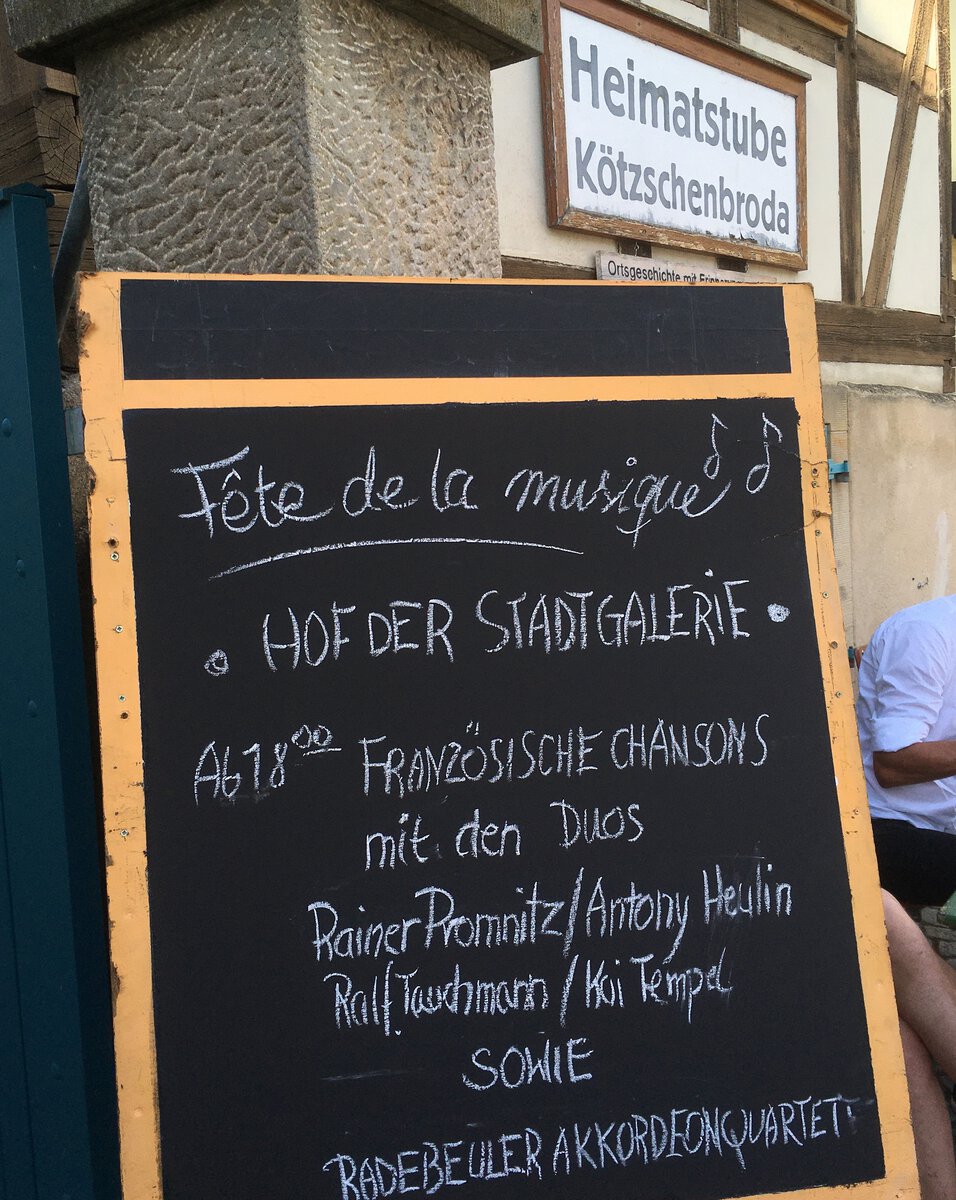 Heimatstube
Kötzschenbroda
Ortsgeschichte mit
Fête de la musique
HOF DER STADTGALERIE
Ab 18 00 FRANZÖSISCHE CHANSONS
mit den DUOS
Rainer Promnitz/Antony Heulin
Ralf Tauchmann/Kai Tempel
SOWIE
RADEBEULER AKKORDEONQUARTETT